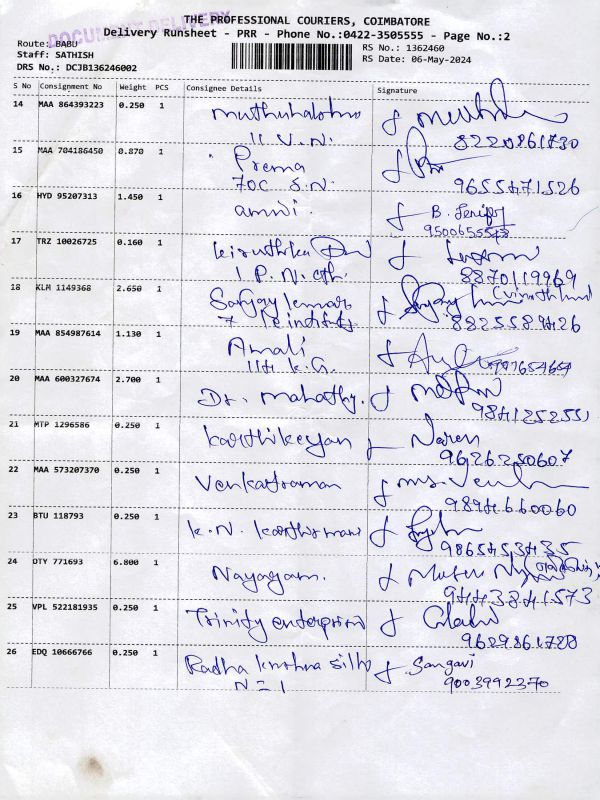 THE PROFESSIONAL COURIERS, COIMBATORE
DOCUMENT DELIVERY
Delivery Runsheet - PRR - Phone No.:0422-3505555 - Page No.:2
Route: BABU RS No.: 1362460
Staff: SATHISH RS Date: 06-May-2024
DRS No.: DCJB136246002
S No Consignment No Weight PCS Consignee Details Signature
14 MAA 864393223 0.250 1
8220861730
15 MAA 704186450 0.870 1 Prema
70C S.N. 9655471526
16 HYD 95207313 1.450 1 B. Jenifer
17 TRZ 10026725 0.160 1
1. P. N. 8870119969
18 KLM 1149368 2.650 1 Sanjay kumar
7 8825589426
19 MAA 854987614 1.130 1 Amali
114 K.G.
20 MAA 600327674 2.700 1 Dr. Mahathy.
21 MTP 1296586 0.250 1 karthikeyan Naren
9626250607
22 MAA 573207370 0.250 1 Venkatraman
9894660060
23 BTU 118793 0.250 1 K.N.
9865453435
24 OTY 771693 6.800 1 Nayagam.
9443841573
25 VPL 522181935 0.250 1 Trinity enterprises
9629861780
26 EDQ 10666766 0.250 1 Radha krishna silks Sangavi
9003992370